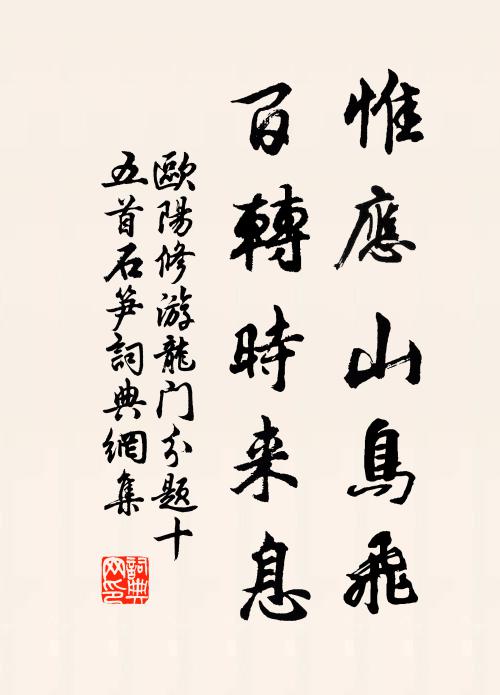 惟應山鳥飛
百轉時来息
歐陽修游龍门分题十
五首石笋詞典網集
詞典网印